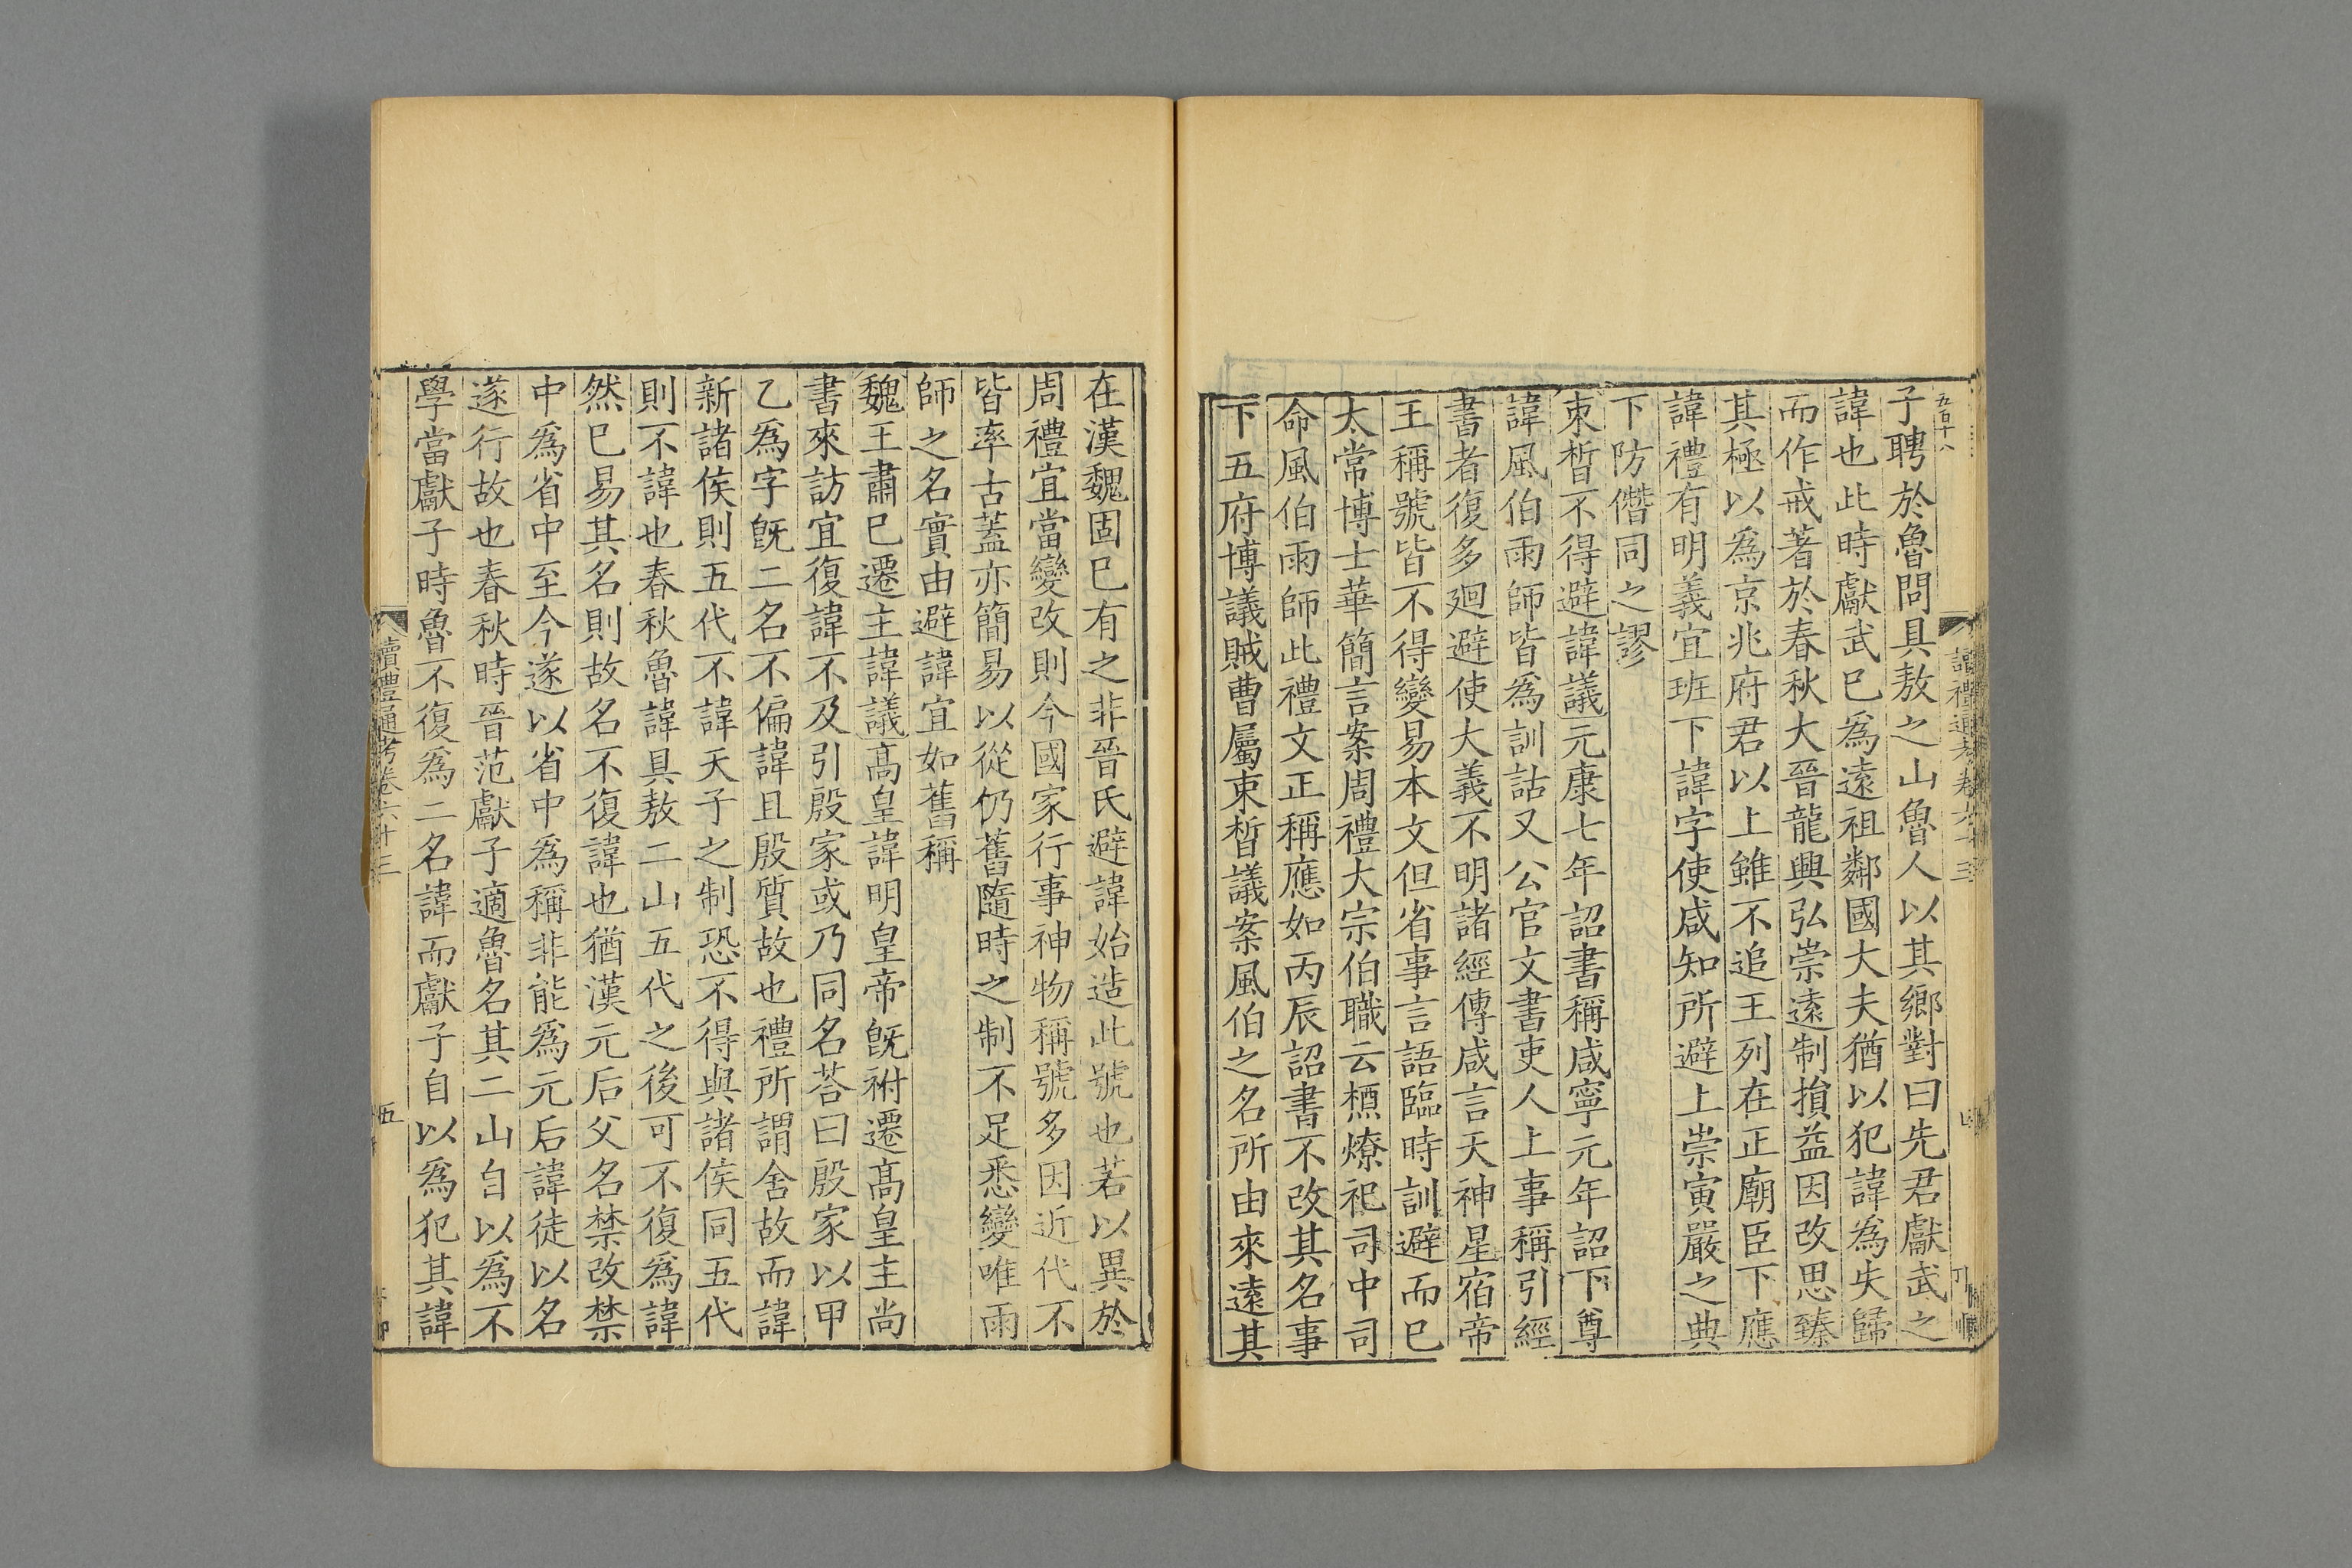 五百十八
讀禮通考卷六十三
四
子聘於魯問具敖之山魯人以其鄉對曰先君獻武之
諱也此時獻武已為遠祖鄰國大夫猶以犯諱為失歸
而作戒著於春秋大晉龍興弘崇遠制損益因改思臻
其極以為京兆府君以上雖不追王列在正廟臣下應
諱禮有明義宜班下諱字使咸知所避上崇寅嚴之典
下防僭同之謬
束晳不得避諱議元康七年詔書稱咸寧元年詔下尊
諱風伯雨師皆為訓詁又公官文書吏人上事稱引經
書者復多廻避使大義不明諸經傳咸言天神星宿帝
王稱號皆不得變易本文但省事言語臨時訓避而已
太常博士華簡言案周禮大宗伯職云槱燎祀司中司
命風伯雨師此禮文正稱應如丙辰詔書不改其名事
下五府博議賊曹屬束晳議案風伯之名所由來遠其
在漢魏固已有之非晉氏避諱始造此號也若以異於
周禮宜當變改則今國家行事神物稱號多因近代不
皆率古蓋亦簡易以從仍舊隨時之制不足悉變唯雨
師之名實由避諱宜如舊稱
魏王肅已遷主諱議高皇諱明皇帝旣祔遷高皇主尚
書來訪宜復諱不及引殷家或乃同名荅曰殷家以甲
乙為字旣二名不偏諱且殷質故也禮所謂舍故而諱
新諸侯則五代不諱天子之制恐不得與諸侯同五代
則不諱也春秋魯諱具敖二山五代之後可不復為諱
然已易其名則故名不復諱也猶漢元后父名禁改禁
中為省中至今遂以省中為稱非能為元后諱徒以名
遂行故也春秋時晉范獻子適魯名其二山自以為不
學當獻子時魯不復為二名諱而獻子自以為犯其諱
讀禮通考卷六十三
五